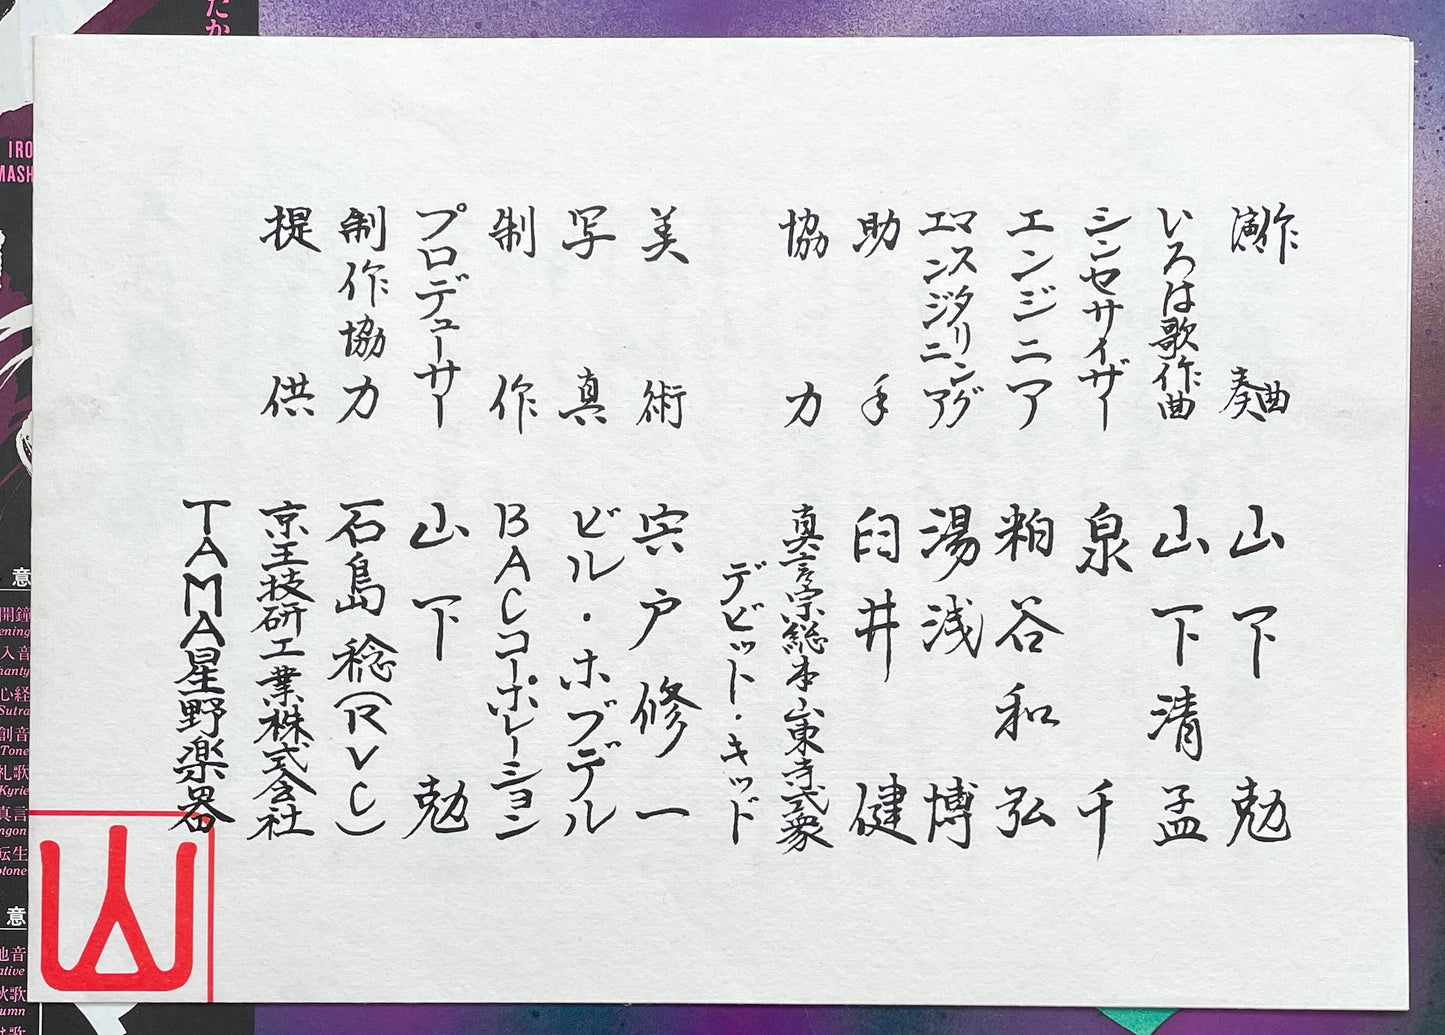 作曲
演奏 山下勉
いろは歌作曲 山下清孟
シンセサイザー 泉千
エンジニア 粕谷和弘
マスタリング
エンジニア 湯浅博
助手 臼井健
協力 真言宗総本山東寺式衆
デビット・キッド
美術 宍戸修一
写真 ビル・ホブデル
制作 BACコーポレーション
プロデューサー 山下勉
制作協力 石島稔(RVC)
提供 京王技研工業株式会社
TAMA星野楽器
たか
IRO
MASH
意
開鐘
ening
入音
hanty
心経
Sutra
創音
Tone
礼歌
Kyrie
真言
ngon
転生
otone
意
地音
ative
火歌
umn